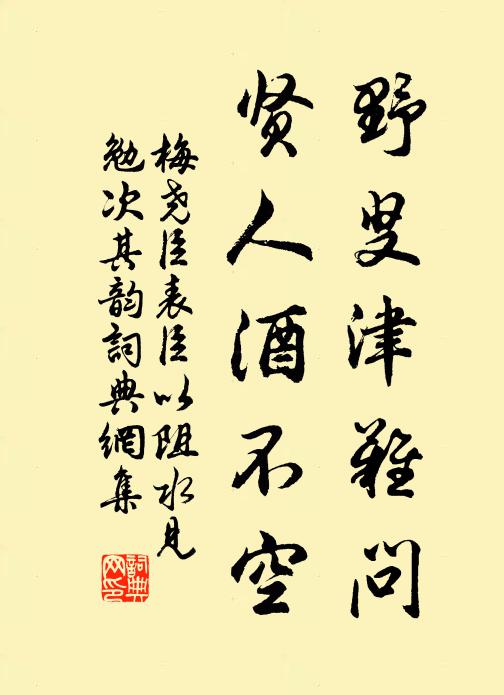 野叟津難问
贤人酒不空
梅尧臣表臣以阻水見
勉次其韵詞典網集
詞典网印